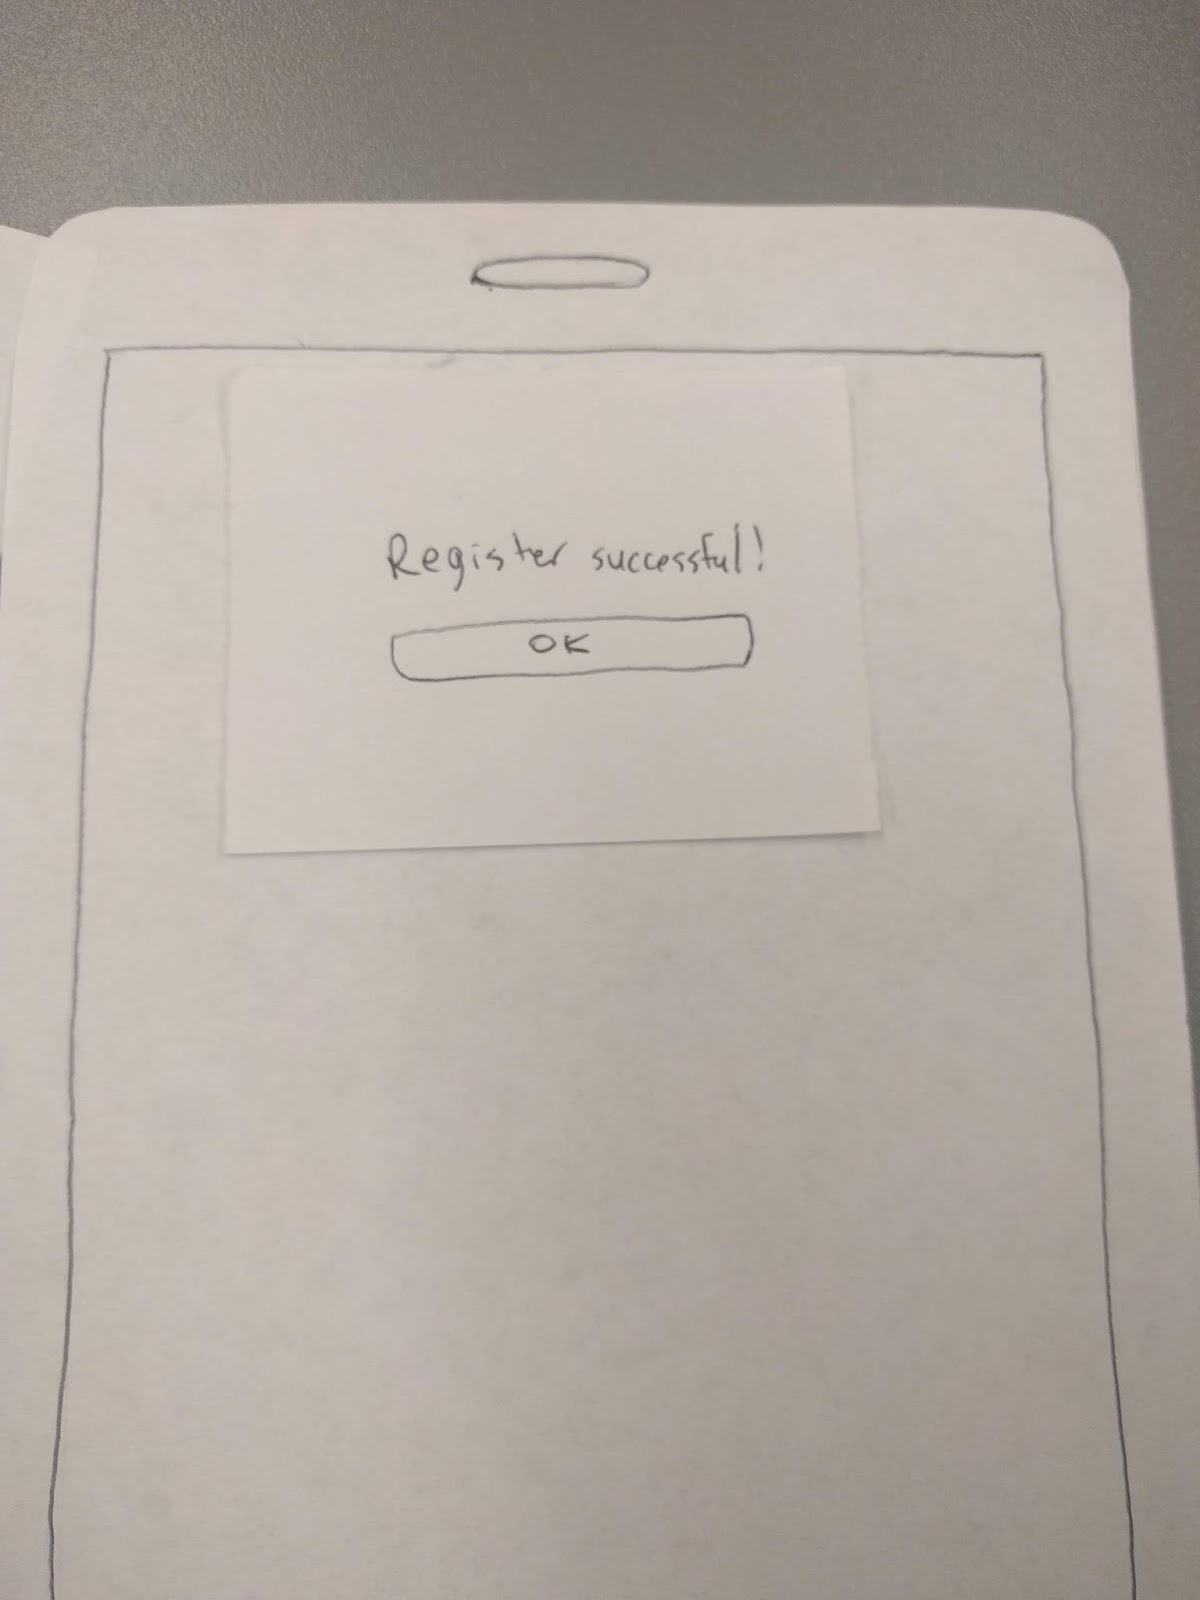 Register successful!
OK